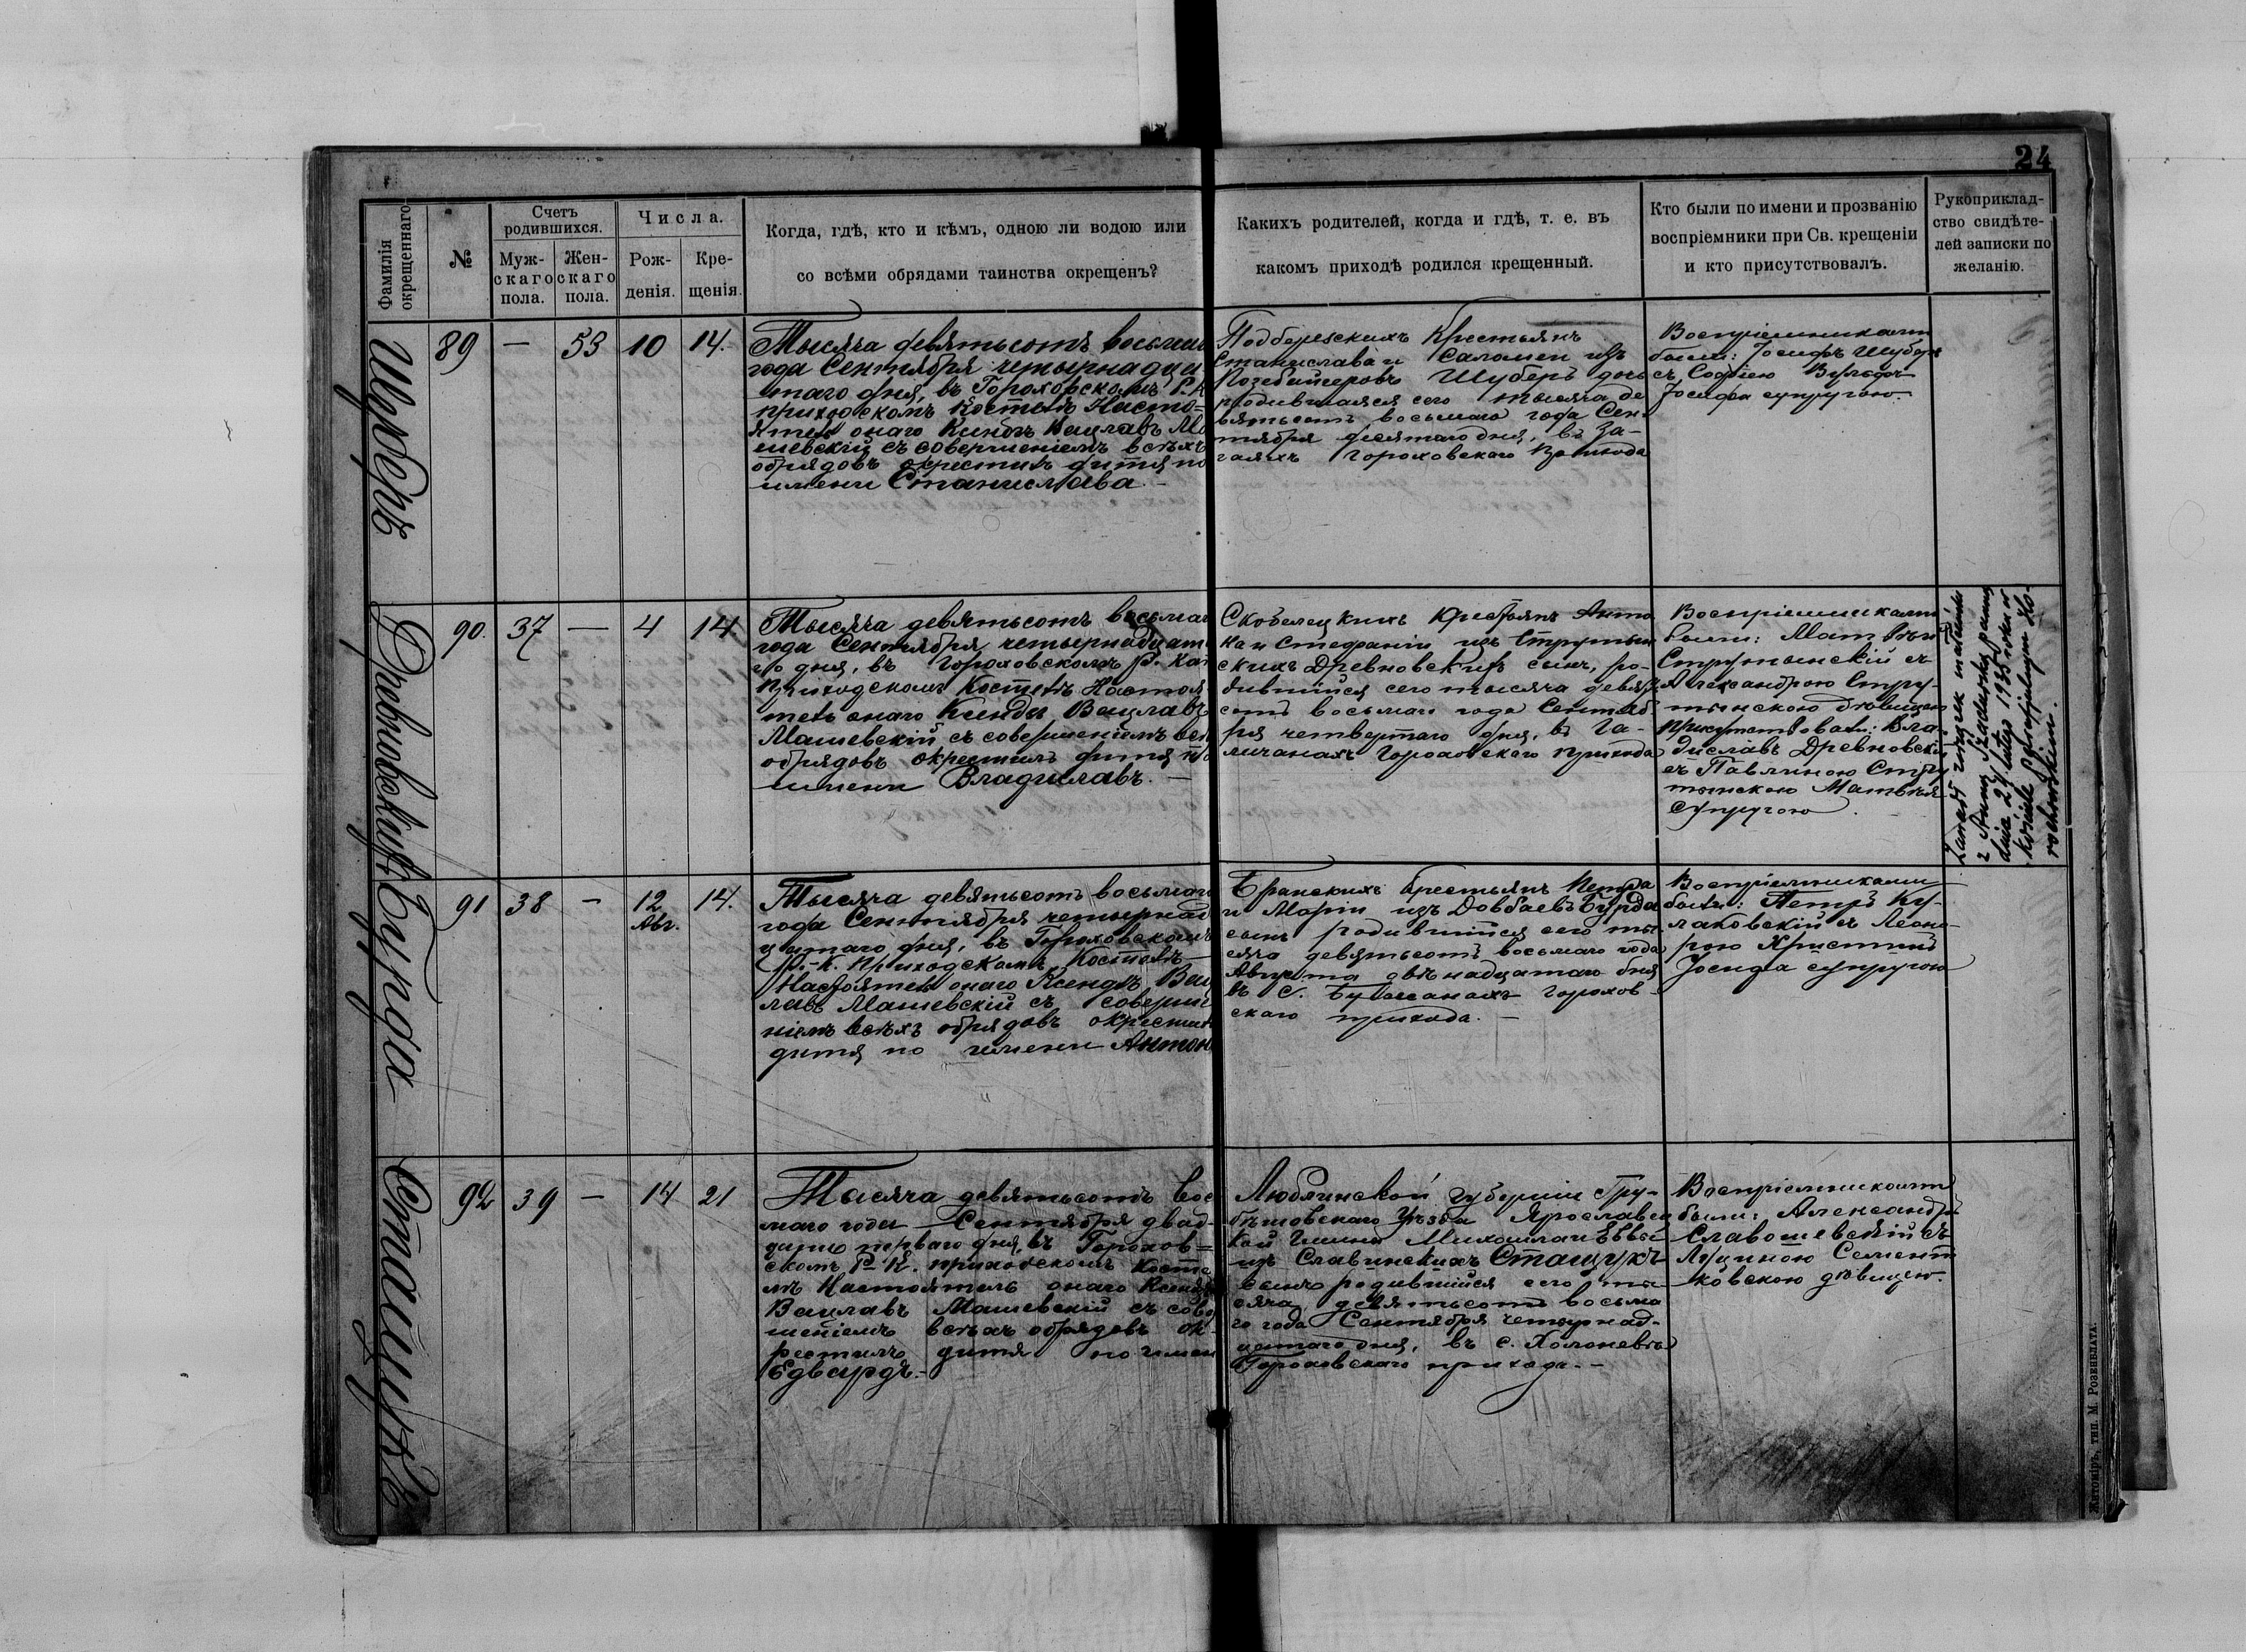 24
Фамилія
окрещеннаго
№
Счетъ
родившихся.
Муж-
скаго
пола.
Жен-
скаго
пола.
Числа.
Рож-
денія.
Кре-
щенія.
Когда, гдѣ, кто и кѣмъ, одною ли водою или
со всѣми обрядами таинства окрещенъ?
Какихъ родителей, когда и гдѣ, т. е. въ
какомъ приходѣ родился крещенный.
Кто были по имени и прозванію
воспріемники при Св. крещеніи
и кто присутствовалъ.
Рукоприклад-
ство свидѣте-
лей записки по
желанію.
Шуберъ
89
—
53
10
14.
Тысяча девятьсотъ восьмаго
года Сентября четырнадца
таго дня, въ Гороховскомъ Р. К
приходскомъ Костелѣ Насто=
ятель онаго Ксендзъ Вацлавъ Ма
шевскій съ совершеніемъ всѣхъ
обрядовъ окрестилъ дитя по
имени Станислава.-
Подберезскихъ Крестьянъ
Станислава и Саломеи изъ
Шуберъ дочь
родившаяся сего тысяча де
вятьсотъ восьмаго года Сен-
тября десятаго дня, въ За-
гаяхъ Гороховскаго Прихода
Воспріемниками
были: Іосифъ Шуберъ
съ Софіею Вульфъ
Іосифа супругою.
Древновскій
90.
37
—
4
14.
Тысяча девятьсотъ восьмаг
года Сентября четырнадцата
го дня, въ Гороховскомъ Р. Кат
Приходскомъ Костелѣ Настоя
тель онаго Ксендзъ Вацлавъ
Машевскій съ совершеніемъ всѣ
обрядовъ окрестилъ дитя по
имени Владиславъ. —
Скобелецкихъ Крестьянъ Анто
на и Стефаніи изъ Струтын
скихъ Древновскихъ сынъ, ро-
дившійся сего тысяча девять
сотъ восьмаго года Сентяб
ря четвертаго дня, въ Га-
личанахъ Гороховскаго прихода
Воспріемниками
были: Матвѣй
Струтынскій съ
Александрою Стру-
тынскою дѣвицею
присутствовали: Вла
диславъ Древновскій
съ Павлиною Стру
тынскою Матвѣя
супругою.
Zawarł związek małżeński
z Anną panną
dnia 24 lutego 1935 roku w
kościele parafjalnym Ho-
rochowskim.
Бурда
91
38
—
12
Авг.
14.
Тысяча девятьсотъ восьмаго
года Сентября четырнад
цатаго дня, въ Гороховскомъ
Р.-К. приходскомъ Костелѣ
Настоятель онаго Ксендзъ Вац
лавъ Машевскій съ соверше
ніемъ всѣхъ обрядовъ окрестилъ
дитя по имени Антон
Бранскихъ Крестьянъ Петра
и Маріи изъ Довбаевъ Бурда
сынъ родившійся сего ты-
сяча девятьсотъ восьмаго года
Августа двѣнадцатаго дня
въ с. Бужанахъ Горохов-
скаго прихода. —
Воспріемниками
были: Петръ Ку-
лаковскій съ Леоно-
рою
Іосифа супругою
Стащукъ
92
39
—
14
21
Тысяча девятьсотъ вос
маго года Сентября двад-
цать перваго дня, въ Горохов=
скомъ Р. К. приходскомъ Косте
лѣ Настоятель онаго Ксендзъ
Вацлавъ Машевскій съ совер
шеніемъ всѣхъ обрядовъ ок-
рестилъ дитя по имени
Едвардъ.-
Люблинской губерніи Гру-
бѣшовскаго Уѣзда Ярославец
кой Гмины Михаила и Еввы
изъ Славинскихъ Стащукъ
сынъ родившійся сего ты-
сяча девятьсотъ восьма
го года Сентября четырнад-
цатаго дня, въ с. Холоневѣ
Гороховскаго прихода.-
Воспріемниками
были: Александръ
Славошевскій съ
Люциною Семент
ковскою дѣвицею.
Житоміръ, тип. М. Розенблата.